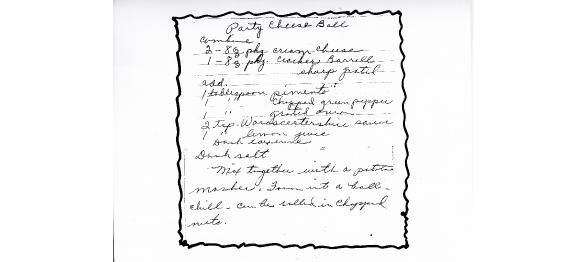 Party Cheese Ball
Combine
2 - 8 oz pkg cream cheese
1 - 8 oz pkg. Cracker Barrell
sharp
add.
1 tablespoon pimento
1 " chopped green pepper
1 "
2 tsp. sauce
1 " lemon
Dash cayenne
Dash salt
Mix together with a potato
masher. Form into a ball -
chill - can be rolled in chopped
nuts.